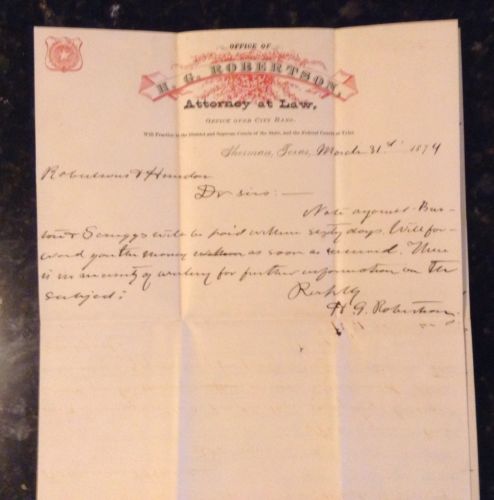 OFFICE OF
H. G. ROBERTSON,
Attorney at Law,
OFFICE OVER CITY BANK.
Will Practice in the District and Supreme Courts of the State, and the Federal Courts at Tyler.
Sherman, Texas, March 31st 1874
Robertson & Herndon
Dr sirs: —
Note against Bur-
ton & Scruggs will be paid within sixty days. Will for-
ward you the money as soon as received. There
is no necessity of writing for further information on the
subject:
Respctly
H. G. Robertson